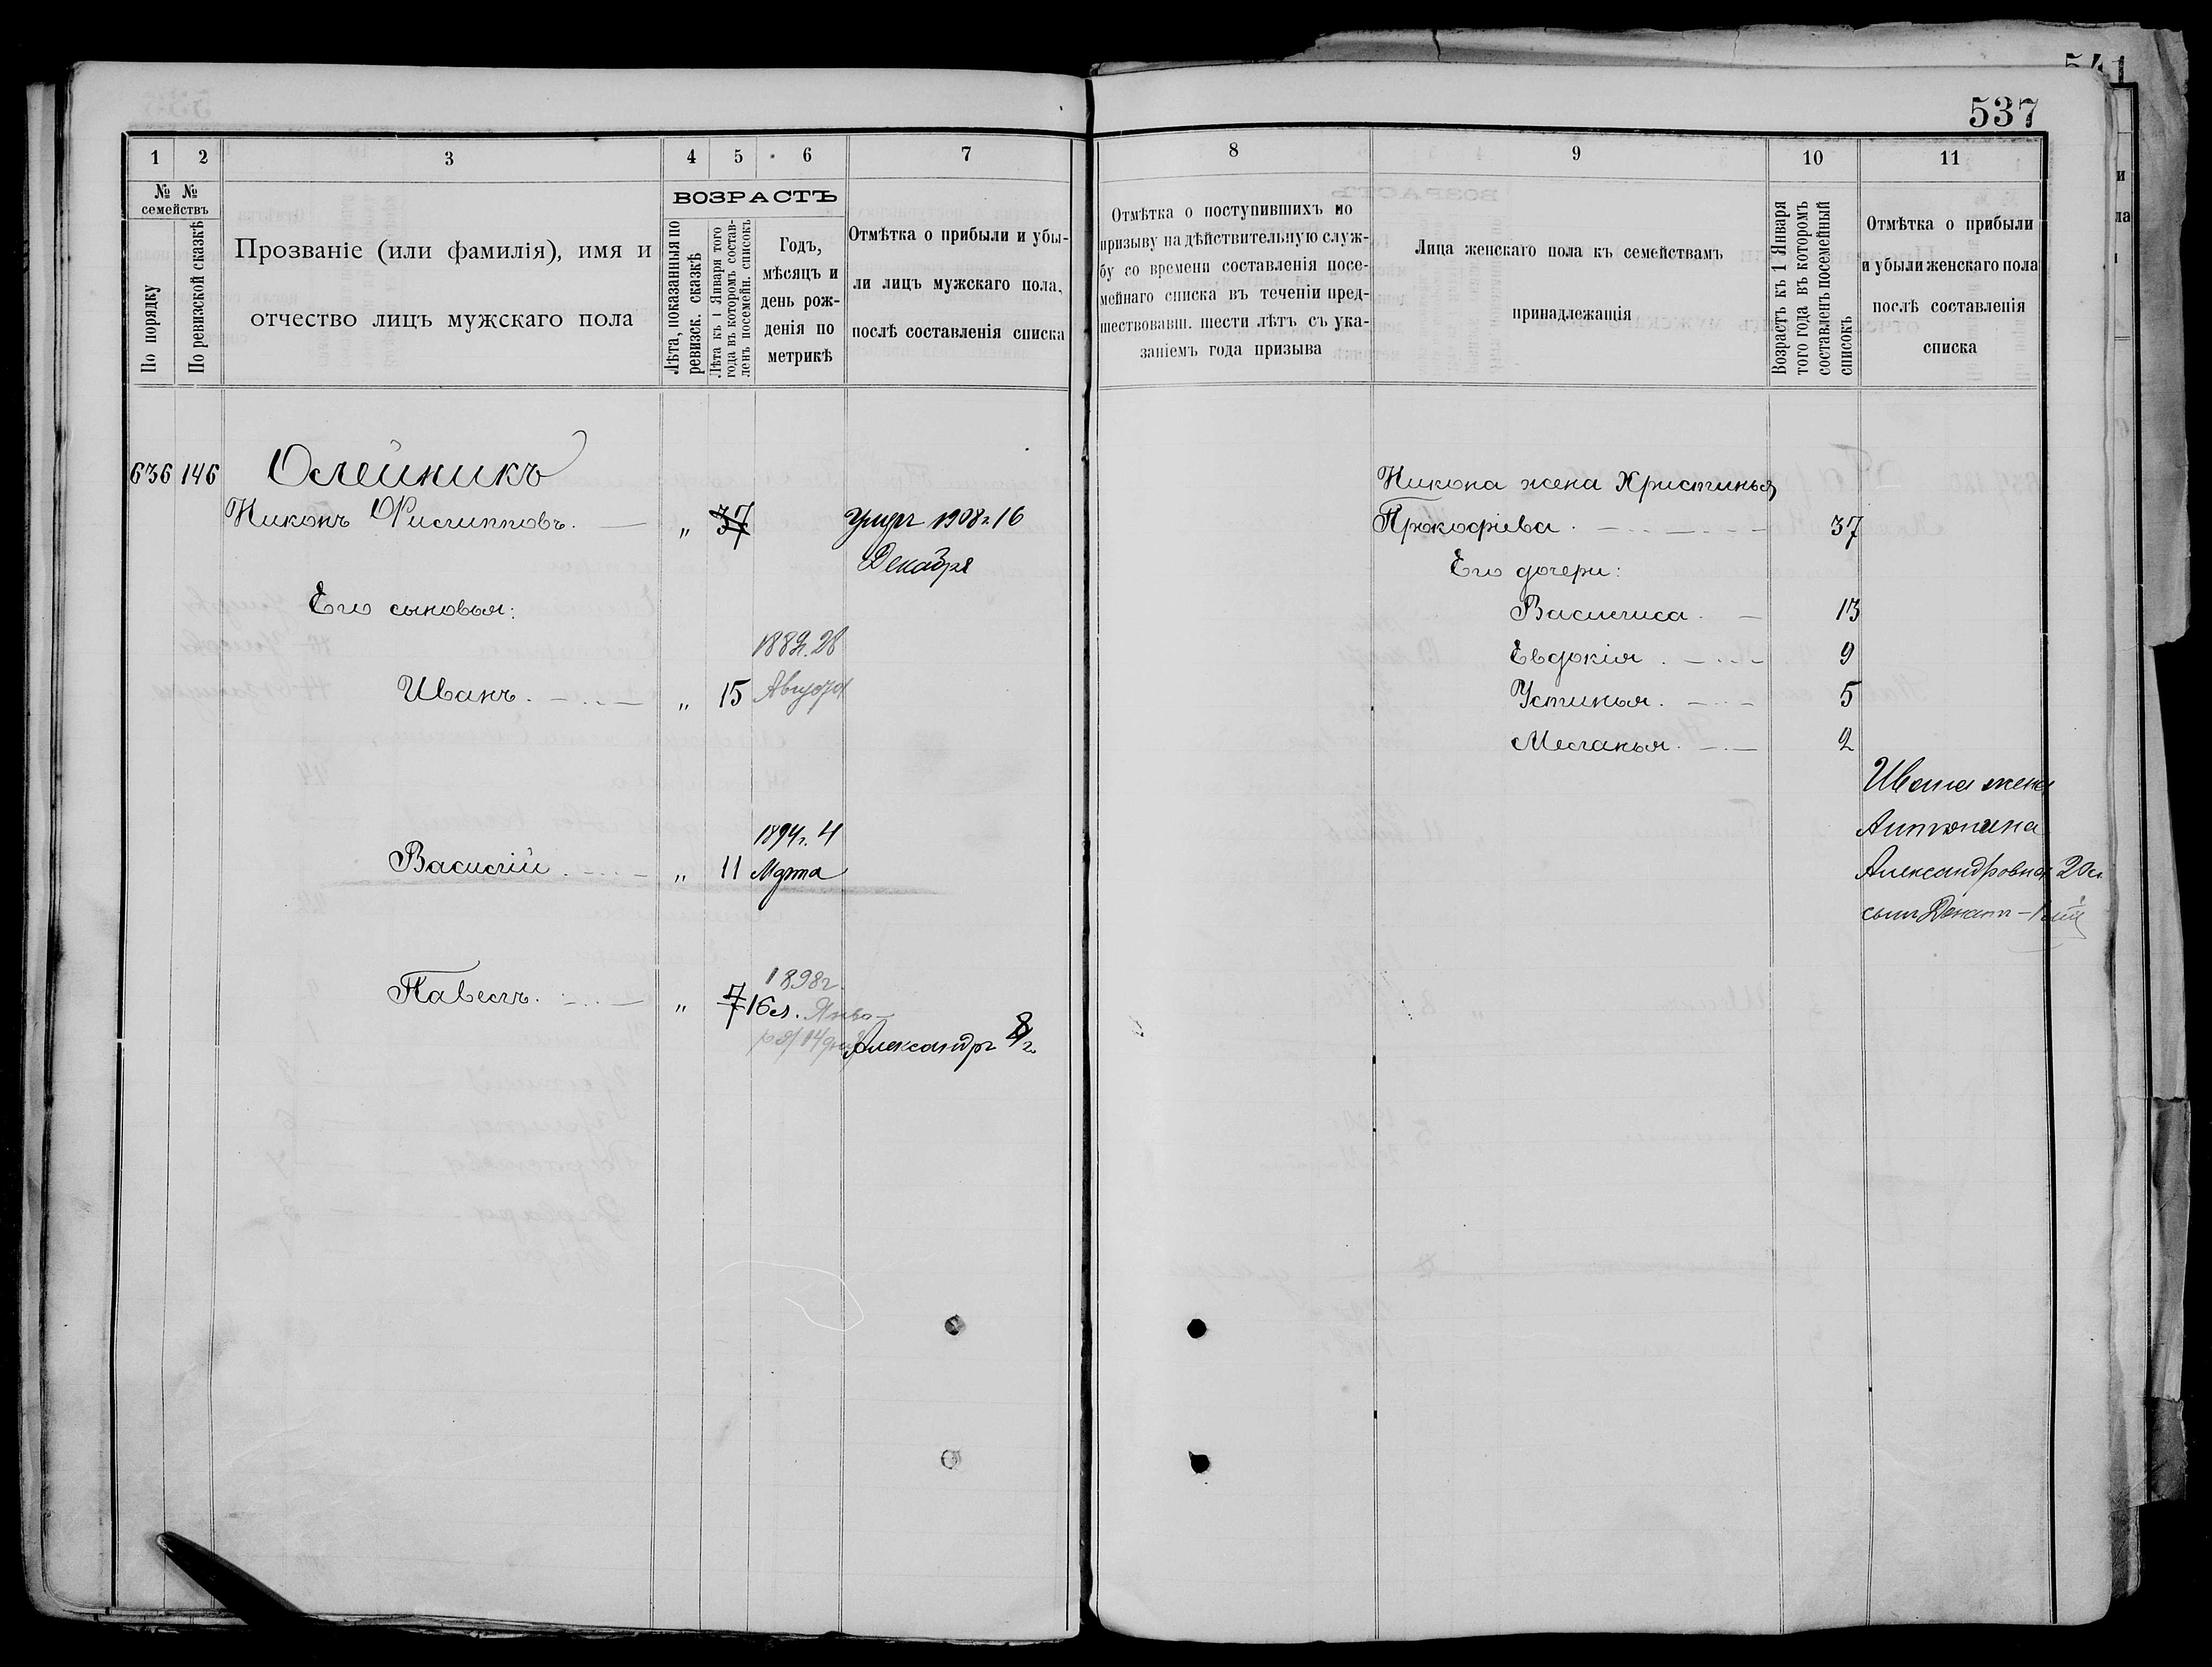 541
537
1 2 3 4 5 6 7
№ № семействъ
По порядку
По ревизской сказкѣ
Прозваніе (или фамилія), имя и
отчество лицъ мужскаго пола
ВОЗРАСТЪ
Лѣта, показанныя по
ревизск. сказкѣ
Лѣта къ 1 Января того
года въ которомъ состав-
ленъ посемейн. списокъ
Годъ,
мѣсяцъ и
день рож-
денія по
метрикѣ
Отмѣтка о прибыли и убы-
ли лицъ мужскаго пола,
послѣ составленія списка
636 146 Олейникъ
Никонъ Филипповъ. — „ 37 умеръ 1908 г. 16
Декабря
Его сыновья:
1889г. 28
Иванъ. — „ 15 Августа
1894г. 4
Василій. — „ 11 Марта
1898г.
Павелъ. — „ 7 16
Александръ
8 9 10 11
Отмѣтка о поступившихъ по
призыву на дѣйствительную служ-
бу со времени составленія посе-
мейнаго списка въ теченіи пред-
шествовавш. шести лѣтъ съ ука-
заніемъ года призыва
Лица женскаго пола къ семействамъ
принадлежащія
Возрастъ къ 1 Января
того года въ которомъ
составленъ посемейный
списокъ
Отмѣтка о прибыли
и убыли женскаго пола
послѣ составленія
списка
Никона жена Христинья
Прокофіева. — 37
Его дочери:
Василиса. — 13
Евдокія. — 9
Устинья. — 5
Меланья. — 2
Ивана жена
Антонина
Александровна 20
сынъ